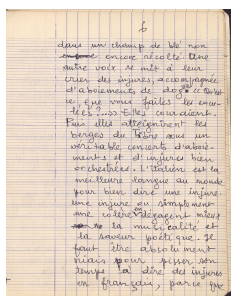 6
dans un champ de blé non
encore récolté. Une
autre voix se mit à leur
crier des injures, accompagnée
d'aboiements de dogs « Qu'est
ce que vous faites les encu-
lées ?... » Elles couraient.
Puis elles atteignirent les
berges du Tibre sous un
véritable concerts d'aboie-
ments et d'injures bien
orchestrées. L'italien est la
meilleure langue au monde
pour bien dire une injure.
une injure ou simplement
une colère dégagent mieux
la musicalité et
la saveur poétique. Je
faut être absolument
niais pour pisser son
temps à dire des injures
en français, parce que